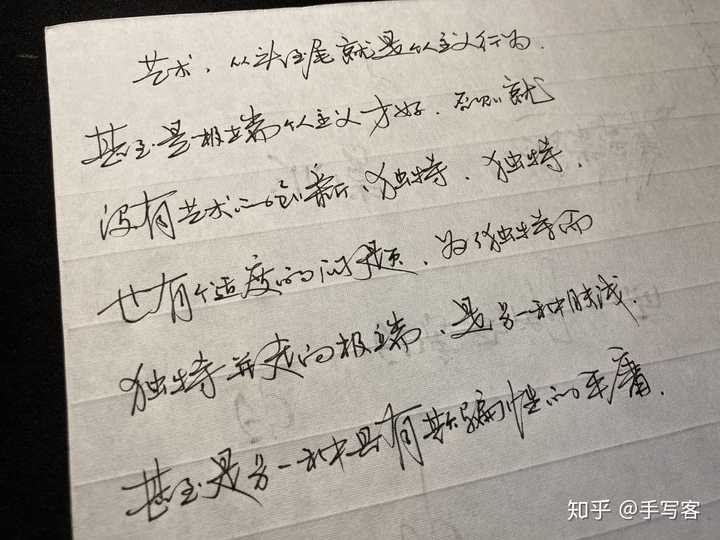 艺术，从头至尾就是个人主义行为.
甚至是极端个人主义才好.否则就
没有艺术的创新、独特、独特，
也有个适度的问题，为了独特而
独特并走向极端，是另一种肤浅.
甚至是另一种具有欺骗性的平庸.
知乎 @手写客